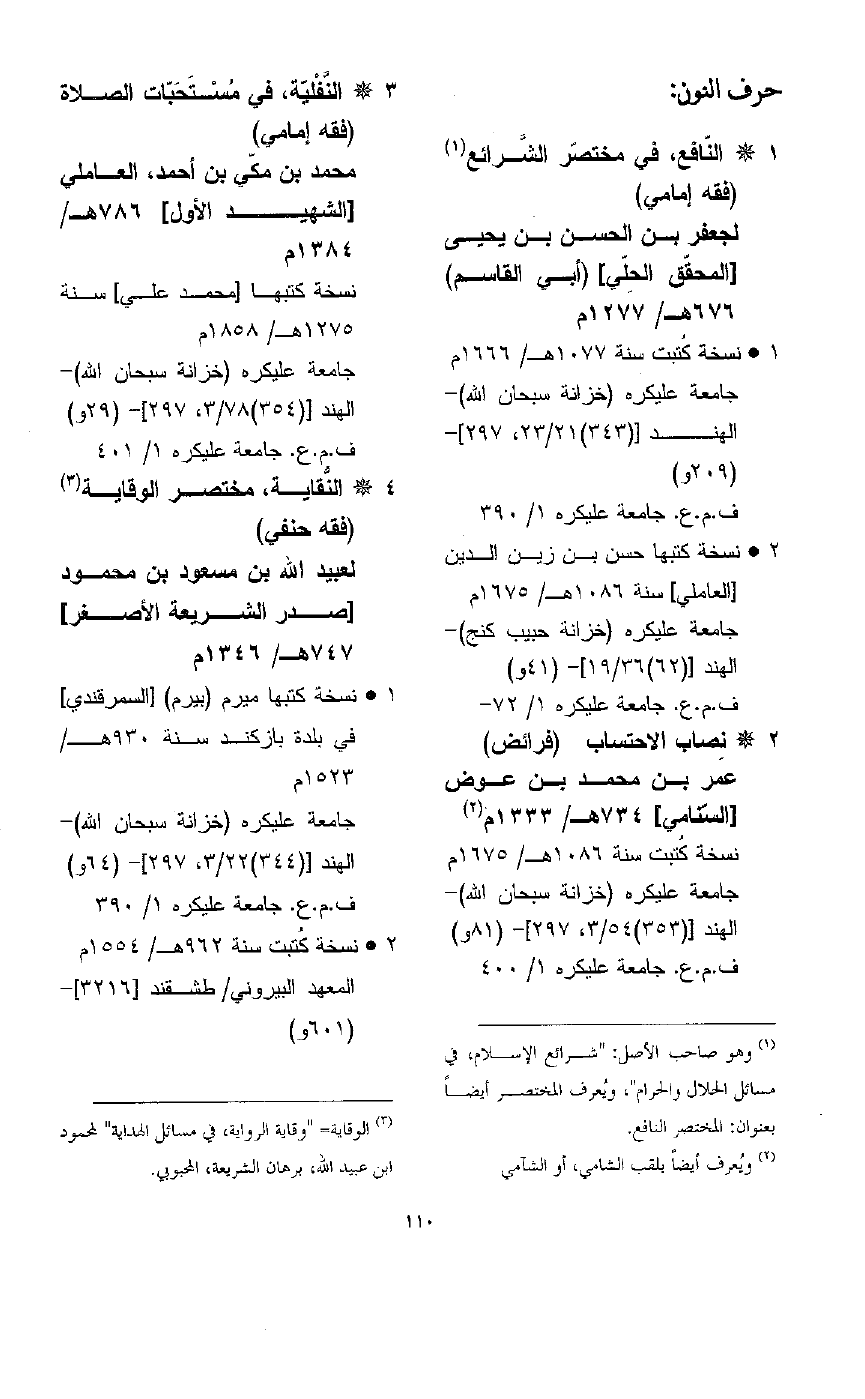 حرف النون:
١ * النَّافع، في مختصَر الشَّرائع(١)
(فقه إمامي)
لجعفر بن الحسن بن يحيى
[المحقّق الحلّي] (أبي القاسم)
٦٧٦هـ/ ١٢٧٧م
١ • نسخة كُتبت سنة ١٠٧٧هـ/ ١٦٦٦م
جامعة عليكره (خزانة سبحان الله)-
الهند [(٣٤٣)٢٣/٢١، ٢٩٧]-
(٢٠٩و)
ف.م.ع. جامعة عليكره ١/ ٣٩٠
٢ • نسخة كتبها حسن بن زين الدين
[العاملي] سنة ١٠٨٦هـ/ ١٦٧٥م
جامعة عليكره (خزانة حبيب كنج)-
الهند [(٦٢)١٩/٣٦]- (٤١و)
ف.م.ع. جامعة عليكره ١/ ٧٢-
٢ * نِصاب الاحتساب (فرائض)
عمر بن محمد بن عوض
[السنّامي] ٧٣٤هـ/ ١٣٣٣م(٢)
نسخة كُتبت سنة ١٠٨٦هـ/ ١٦٧٥م
جامعة عليكره (خزانة سبحان الله)-
الهند [(٣٥٣)٣/٥٤، ٢٩٧]- (٨١و)
ف.م.ع. جامعة عليكره ١/ ٤٠٠
(١) وهو صاحب الأصل: "شرائع الإسلام، في
مسائل الحلال والحرام"، ويُعرف المختصر أيضاً
بعنوان: المختصر النافع.
(٢) ويُعرف أيضاً بلقب الشامي، أو الشآمي
٣ * النَّفْليّة، في مُسْتَحَبّات الصلاة
(فقه إمامي)
محمد بن مكّي بن أحمد، العاملي
[الشهيد الأول] ٧٨٦هـ/
١٣٨٤م
نسخة كتبها [محمد علي] سنة
١٢٧٥هـ/ ١٨٥٨م
جامعة عليكره (خزانة سبحان الله)-
الهند [(٣٥٤)٣/٧٨، ٢٩٧]- (٢٩و)
ف.م.ع. جامعة عليكره ١/ ٤٠١
٤ * النُّقاية، مختصر الوقاية(٣)
(فقه حنفي)
لعبيد الله بن مسعود بن محمود
[صدر الشريعة الأصغر]
٧٤٧هـ/ ١٣٤٦م
١ • نسخة كتبها ميرم (بيرم) [السمرقندي]
في بلدة بازكند سنة ٩٣٠هـ/
١٥٢٣م
جامعة عليكره (خزانة سبحان الله)-
الهند [(٣٤٤)٣/٢٢، ٢٩٧]- (٦٤و)
ف.م.ع. جامعة عليكره ١/ ٣٩٠
٢ • نسخة كُتبت سنة ٩٦٢هـ/ ١٥٥٤م
المعهد البيروني/ طشقند [٣٢١٦]-
(٦٠١و)
(٣) الوقاية= "وقاية الرواية، في مسائل الهداية" لمحمود
ابن عبيد الله، برهان الشريعة، المحبوبي.
١١٠